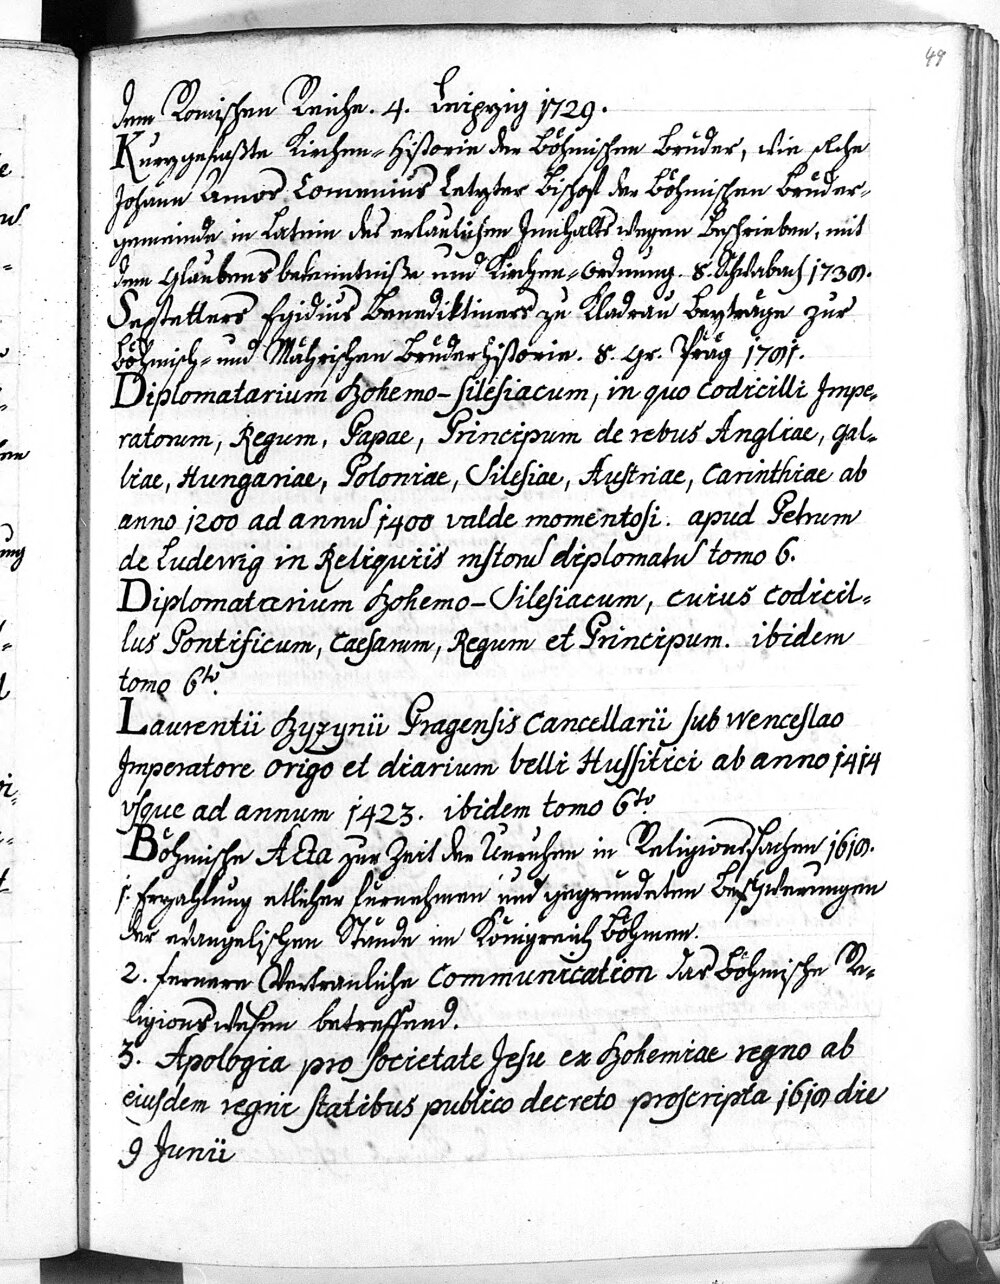 49
dem Romischen Reiche. 4. Leipzig 1729.
Kurzgefaßte Kirchen-Historie der Böhmischen Brüder, wie solche
Johann Amos Comenius Letzter Bischof der Böhmischen Brüder-
gemeinde in Latein des erbaulichen Innhalts wegen beschrieben, mit
dem Glaubensbekenntniße und Kirchen-Ordnung. 8. Schwabach 1739.
Egidius Benediktiners zu Kladrau Beyträge zur
böhmisch- und Mährischen Bruderhistorie. 8. gr. Prag 1781.
Diplomatarium Bohemo-Silesiacum, in quo Codicilli Impe-
ratorum, Regum, Papae, Principum de rebus Angliae, Gal-
liae, Hungariae, Poloniae, Silesiae, Austriae, Carinthiae ab
anno 1200 ad annu 1400 valde momentosi. apud Petrum
de Ludewig in Reliquiis mstoru diplomatu tomo 6.
Diplomatarium Bohemo-Silesiacum, cuius Codicil-
lus Pontificum, Caesarum, Regum et Principum. ibidem
tomo 6to.
Laurentii Byzynii Pragensis Cancellarii sub Wenceslao
Imperatore origo et diarium belli Hussitici ab anno 1414
usque ad annum 1423. ibidem tomo 6to
Böhmische Acta zur Zeit der Unruhen in Religionssachen 1619.
1. Erzahlung etlicher furnehmen und gegrundeten Beschwerungen
der evangelischen Stände im Königreich Böhmen.
2. fernere Vertrauliche Communication das Böhmische Re-
ligionswesen betreffend.
3. Apologia pro Societate Jesu ex Bohemiae regno ab
eiusdem regni statibus publico decreto proscripta 1619 die
9 Junii